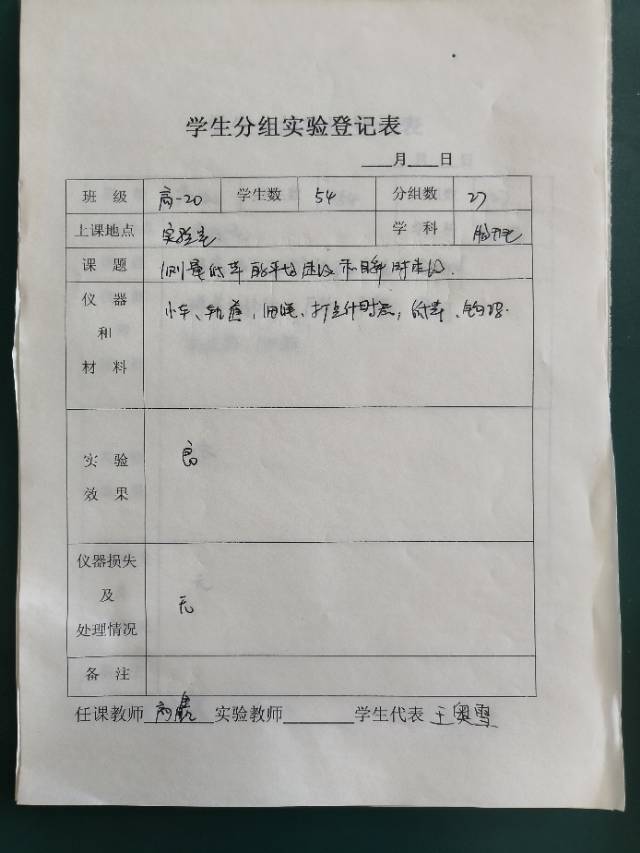 学生分组实验登记表
月 日
班级 高一20 学生数 54 分组数 27
上课地点 实验室 学科 物理
课题 测量的平均速度和瞬时速度.
仪器和材料 小车、打点计时器、钩码.
实验效果 良
仪器损失及处理情况 无
备注
任课教师 实验教师 学生代表 王奥雪